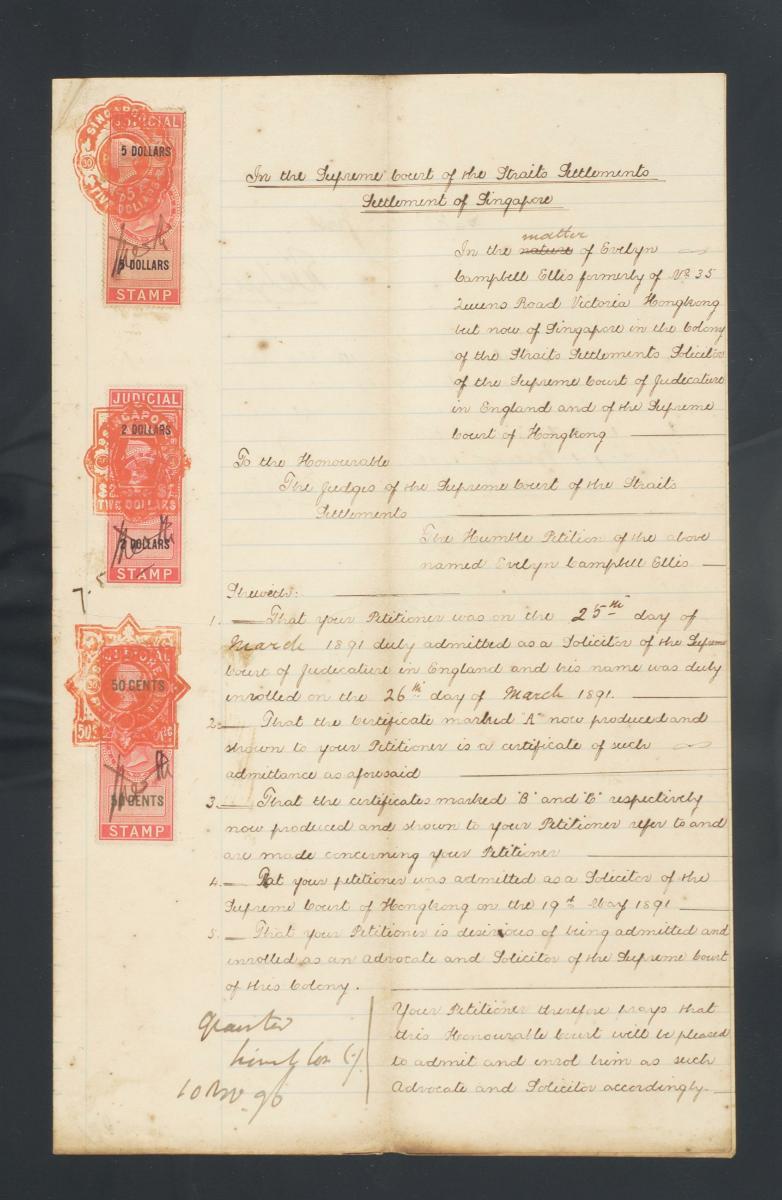 JUDICIAL
5 DOLLARS
SINGAPORE
FIVE DOLLARS
5 DOLLARS
STAMP
JUDICIAL
2 DOLLARS
SINGAPORE
TWO DOLLARS
2 DOLLARS
STAMP
7.5
50 CENTS
50 CENTS
STAMP
In the Supreme Court of the Straits Settlements
Settlement of Singapore
matter
In the nature of Evelyn
Campbell Ellis formerly of No. 35
Queens Road Victoria Hongkong
but now of Singapore in the Colony
of the Straits Settlements Solicitor
of the Supreme Court of Judicature
in England and of the Supreme
Court of Hongkong
To the Honourable
The Judges of the Supreme Court of the Straits
Settlements
The Humble Petition of the above
named Evelyn Campbell Ellis
Sheweth:
1. That your Petitioner was on the 25th day of
March 1891 duly admitted as a Solicitor of the Supreme
Court of Judicature in England and his name was duly
enrolled on the 26th day of March 1891.
2. That the Certificate marked "A" now produced and
shown to your Petitioner is a certificate of such
admittance as aforesaid
3. That the certificates marked "B" and "C" respectively
now produced and shown to your Petitioner refer to and
are made concerning your Petitioner
4. Tat your petitioner was admitted as a Solicitor of the
Supreme Court of Hongkong on the 19th May 1891
5. That your Petitioner is desirious of being admitted and
enrolled as an Advocate and Solicitor of the Supreme Court
of this Colony.
Your Petitioner therefore prays that
this Honourable Court will be pleased
to admit and enrol him as such
Advocate and Solicitor accordingly.
Granted
10 Nov 96